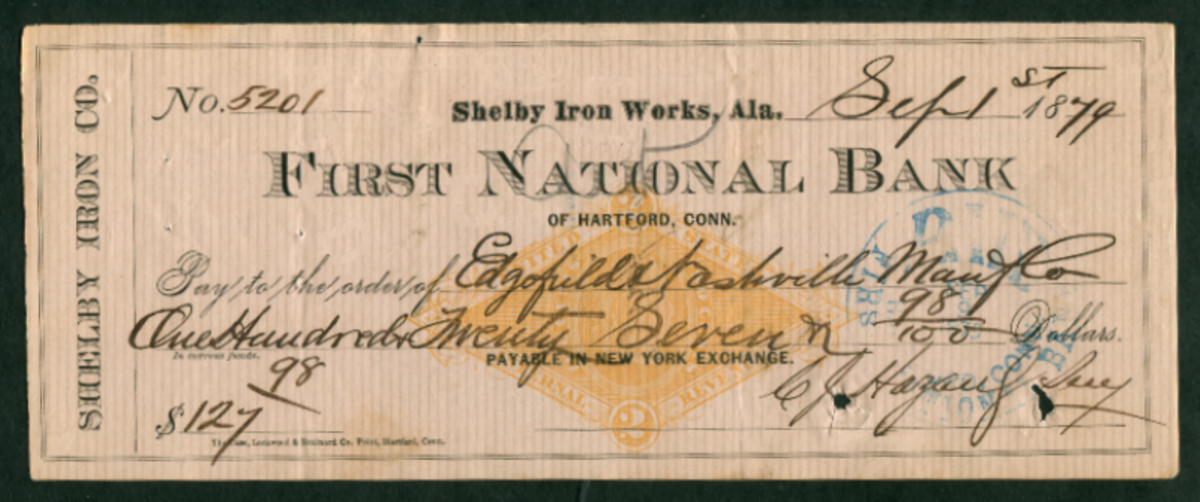 SHELBY IRON CO.
No. 5201
Shelby Iron Works, Ala. Sept 1st 1879
FIRST NATIONAL BANK
OF HARTFORD, CONN.
Pay to the order of Edgefield & Nashville Manf Co
One Hundred & Twenty Seven & 98/100 Dollars.
In current funds.
PAYABLE IN NEW YORK EXCHANGE.
$127 98
UNITED STATES
INTERNAL REVENUE
2
Lockwood & Brainard Co. Print, Hartford, Conn.